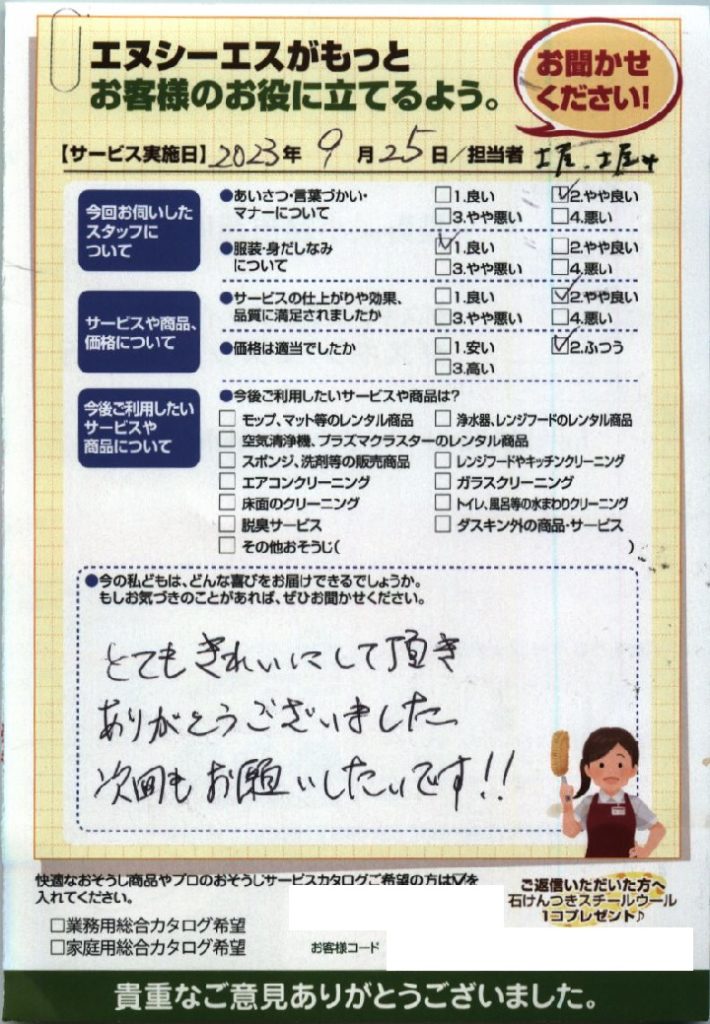 エヌシーエスがもっと
お客様のお役に立てるよう。
お聞かせ
ください!
【サービス実施日】2023年 9月25日/担当者 土屋、土屋
今回お伺いした
スタッフに
ついて
●あいさつ・言葉づかい・
マナーについて
□1.良い ☑2.やや良い
□3.やや悪い □4.悪い
●服装・身だしなみ
について
☑1.良い □2.やや良い
□3.やや悪い □4.悪い
サービスや商品、
価格について
●サービスの仕上がりや効果、
品質に満足されましたか
□1.良い ☑2.やや良い
□3.やや悪い □4.悪い
●価格は適当でしたか
□1.安い ☑2.ふつう
□3.高い
今後ご利用したい
サービスや
商品について
●今後ご利用したいサービスや商品は?
□モップ、マット等のレンタル商品 □浄水器、レンジフードのレンタル商品
□空気清浄機、プラズマクラスターのレンタル商品
□スポンジ、洗剤等の販売商品 □レンジフードやキッチンクリーニング
□エアコンクリーニング □ガラスクリーニング
□床面のクリーニング □トイレ、風呂等の水まわりクリーニング
□脱臭サービス □ダスキン外の商品・サービス
□その他おそうじ( )
●今の私どもは、どんな喜びをお届けできるでしょうか。
もしお気づきのことがあれば、ぜひお聞かせください。
とてもきれいにして頂き
ありがとうございました
次回もお願いしたいです!!
快適なおそうじ商品やプロのおそうじサービスカタログご希望の方は☑を
入れてください。
□業務用総合カタログ希望
□家庭用総合カタログ希望
お客様コード
ご返信いただいた方へ
石けんつきスチールウール
1コプレゼント♪
貴重なご意見ありがとうございました。